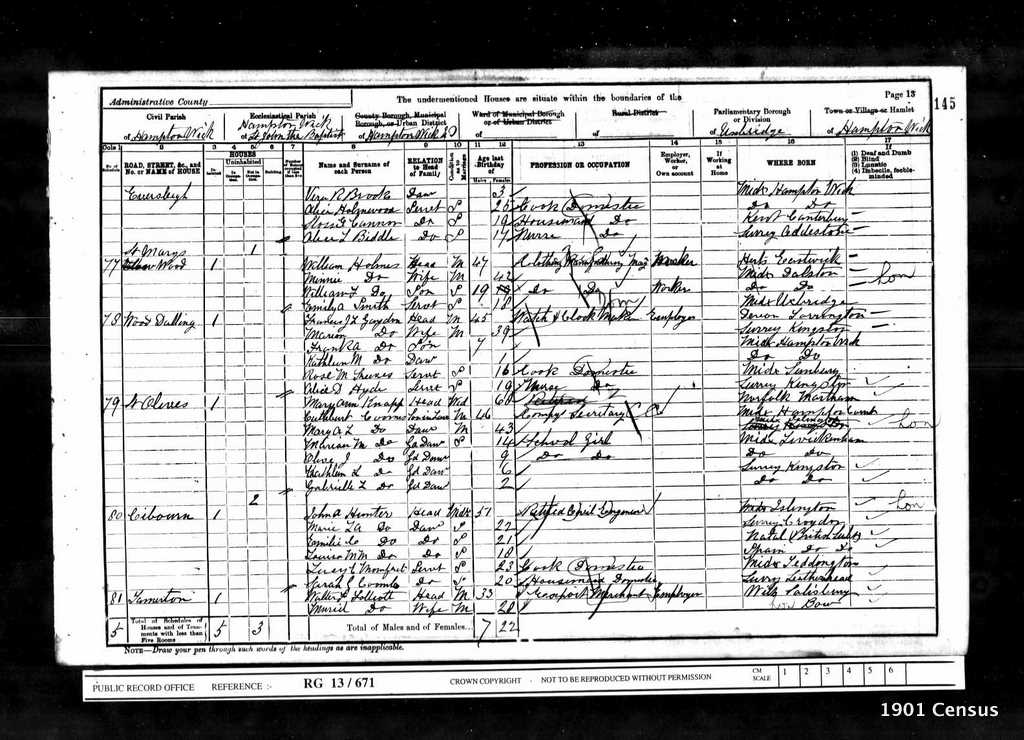 Administrative County
The undermentioned Houses are situate within the boundaries of the
Page 13
145
Civil Parish
of Hampton Wick
Ecclesiastical Parish
Hampton Wick
of St John the Baptist
County Borough, Municipal Borough, or Urban District
of Hampton Wick U D
Ward of Municipal Borough or of Urban District
of
Rural District
of
Parliamentary Borough or Division
of Uxbridge
Town or Village or Hamlet
of Hampton Wick
Cols 1 2 3 4 5 6 7 8 9 10 11 12 13 14 15 16 17
No. of Schedule
ROAD, STREET, &c., and No. or NAME of HOUSE
HOUSES
Inhabited
Uninhabited
In Occupation
Not in Occupation
Building
Name and Surname of each Person
RELATION to Head of Family
Condition as to Marriage
Age last Birthday of
Males Females
PROFESSION OR OCCUPATION
Employer, Worker, or Own account
If Working at Home
WHERE BORN
If
(1) Deaf and Dumb
(2) Blind
(3) Lunatic
(4) Imbecile, feeble-minded
Eversleigh Vera R Brooks Daur 3 Midx Hampton Wick
Alice Servt S 25 Cook Domestic Do Do
Cannon Do S 19 Housemaid Do Kent Canterbury
Alice L Biddle Do S 17 Nurse Do Surrey Addlestone
St Marys 1
77 Wood 1 William Holmes Head M 47 Clothing Worker Herts Eastwick
Minnie Do Wife M 42 Midx Dalston Lon
William Do Son S 19 Do Do Worker Do Do
Emily A Smith Servt S 18 Dom Midx Uxbridge
78 Wood Dalling 1 Francis J L Head M 45 Watch & Clock Maker Employer Devon Torrington
Marion Do Wife M 39 Surrey Kingston
Frank A Do Son 7 Midx Hampton Wick
Kathleen M Do Daur 1 Do Do
Rose M Servt S 16 Cook Domestic Midx Sunbury
Alice S Hyde Servt S 19 Nurse Do Surrey Kingston
79 St Olives 1 Mary Ann Knapp Head Wid Retired Norfolk Martham
Cuthbert Coombs Son in Law M 46 Compy Secretary Midx Hampton Court
Mary A L Do Daur M 43 Lon
Marian M Do Gd Daur S 14 School Girl Midx Twickenham
Olive J Do Gd Daur 9 Do Do Do Do
Kathleen L Do Gd Daur 6 Surrey Kingston
Gabrielle L Do Gd Daur 2 Do Do
2
80 Cibourn 1 John A Hunter Head Widr 57 Retired Civil Engineer Midx Islington Lon
Marie L A Do Daur S 22 Surrey Croydon
Emilie Do Do S 21 Natal
Louisa M M Do Do S 18 Do Do
Lucy C Servt S 23 Cook Domestic Midx Teddington
Sarah C Coombs Do S 20 Housemaid Domestic Surrey Leatherhead
81 Tamerton 1 Head M 33 Merchant Employer Wilts Salisbury
Muriel Do Wife M 28 Bow
5 Total of Schedules of Houses and of Tenements with less than Five Rooms 5 3 Total of Males and of Females... 7 22
NOTE—Draw your pen through such words of the headings as are inapplicable.
PUBLIC RECORD OFFICE REFERENCE :- RG 13/671 CROWN COPYRIGHT - NOT TO BE REPRODUCED WITHOUT PERMISSION CM SCALE 1 2 3 4 5 6
1901 Census